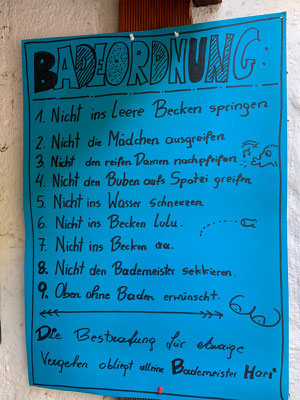 BADEORDNUNG:
1. Nicht ins leere Becken springen
2. Nicht die Mädchen ausgreifen
3. Nicht den reifen Damen nachpfeifen
4. Nicht den Buben aufs Spatzi greifen
5. Nicht ins Wasser schneuzen
6. Nicht ins Becken lulu.
7. Nicht ins Becken aa.
8. Nicht den Bademeister sekkieren.
9. Oben ohne Baden erwünscht.
Die Bestrafung für etwaige
Vergehen obliegt alleine Bademeister Hari